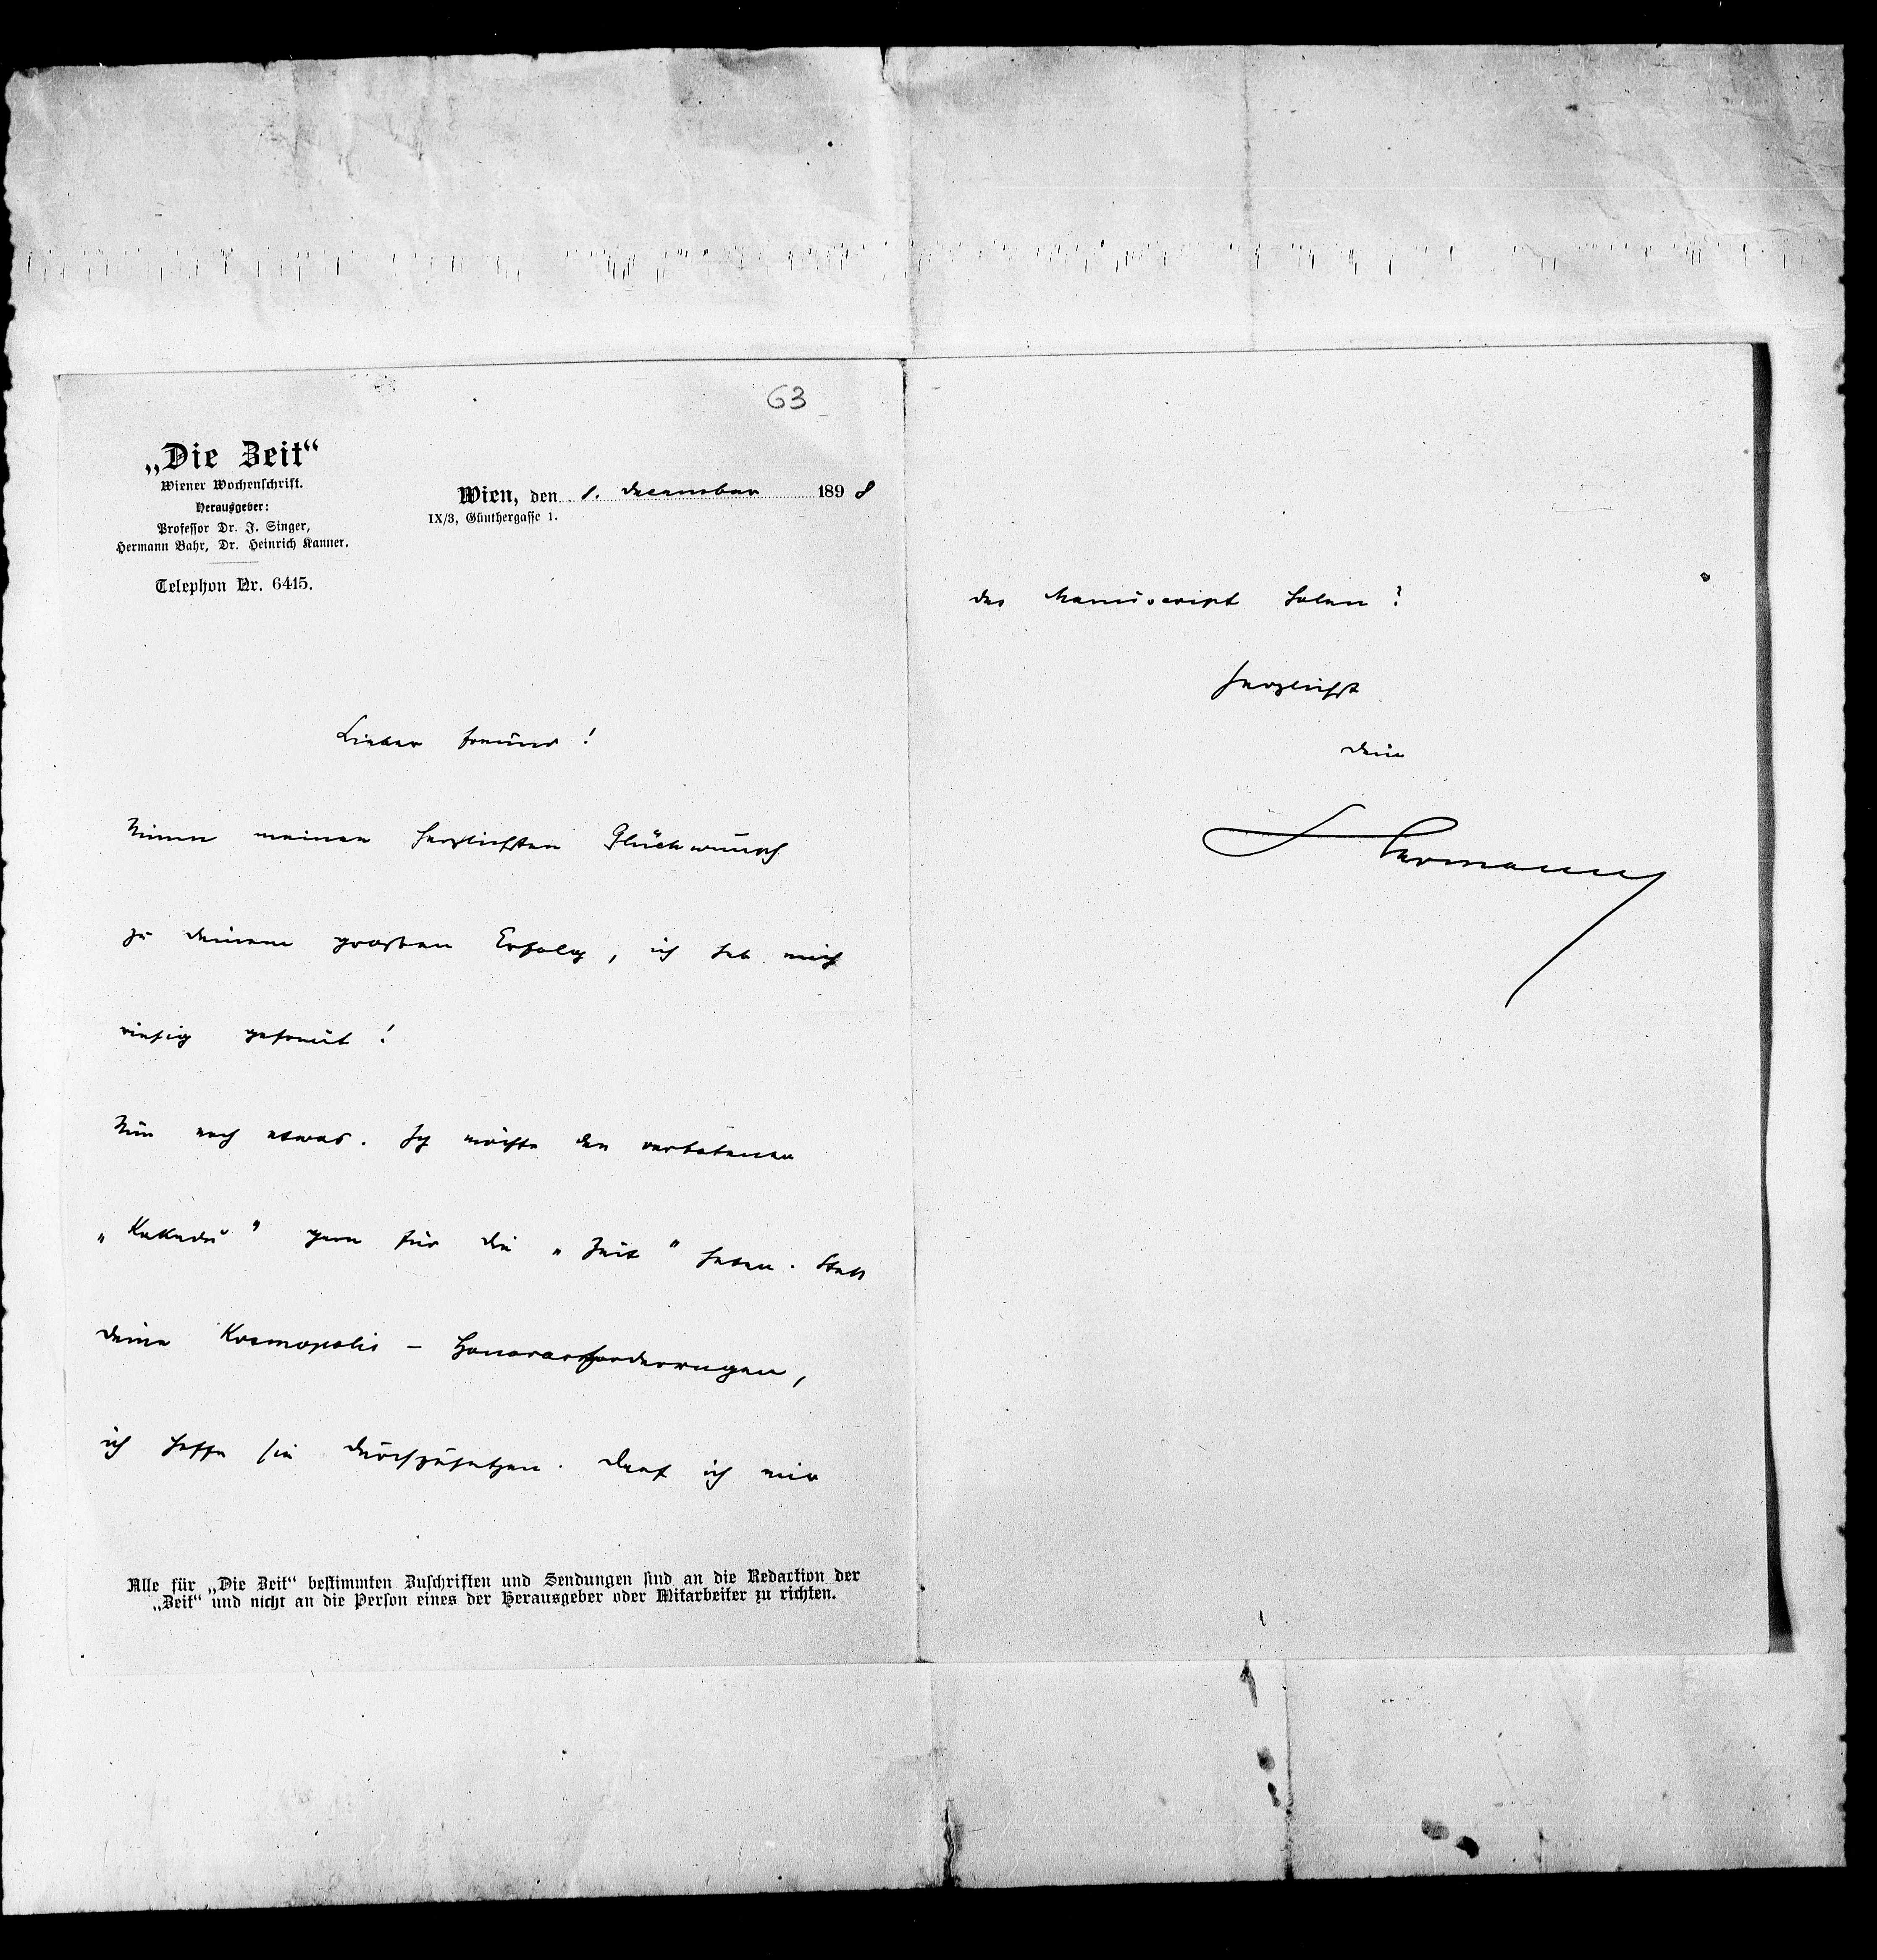 63
„Die Zeit“
Wiener Wochenschrift.
Herausgeber:
Professor Dr. J. Singer,
Hermann Bahr, Dr. Heinrich Kanner.
Telephon Nr. 6415.
Wien, den 1. December 1898
IX/3, Günthergasse 1.
Lieber Freund!
Nimm meinen herzlichsten Glückwunsch
zu Deinem großen Erfolg, ich hab mich
riesig gefreut!
Nun noch etwas. Ich möchte den verbotenen
„Kakadu“ gern für die „Zeit“ haben. Stell
Deine Kosmopolis-Honorarforderungen,
ich hoffe sie durchzusetzen. Darf ich mir
Alle für „Die Zeit“ bestimmten Zuschriften und Sendungen sind an die Redaction der
„Zeit“ und nicht an die Person eines der Herausgeber oder Mitarbeiter zu richten.
das Manuscript holen?
Herzlichst
Dein
Hermann